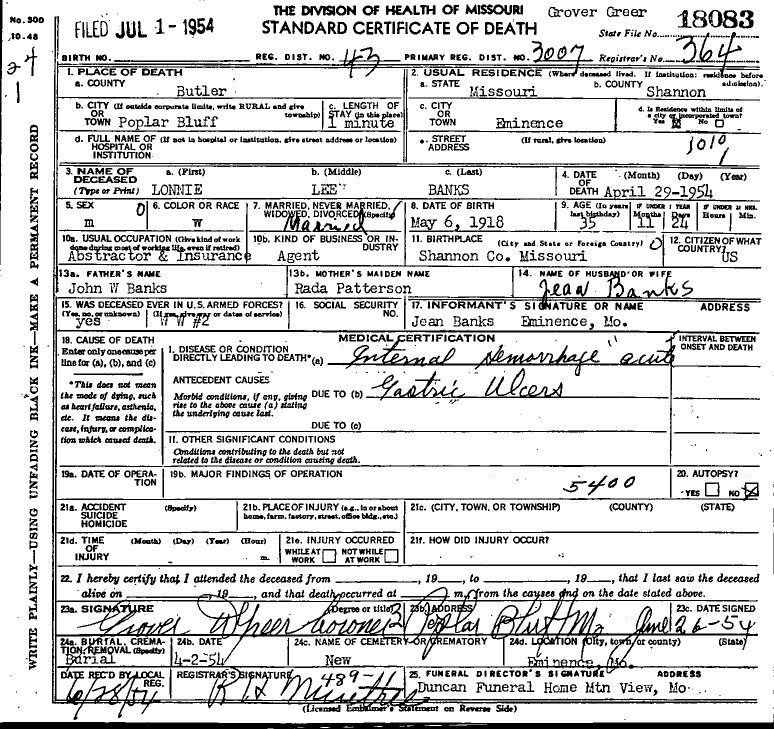 No. 300
10-48
THE DIVISION OF HEALTH OF MISSOURI
Grover Greer
FILED JUL 1 - 1954
STANDARD CERTIFICATE OF DEATH
State File No. 18083
BIRTH NO.
REG. DIST. NO. 43
PRIMARY REG. DIST. NO. 3007
Registrar's No. 364
24
1
1. PLACE OF DEATH
a. COUNTY
Butler
2. USUAL RESIDENCE (Where deceased lived. If institution: residence before admission).
a. STATE Missouri
b. COUNTY Shannon
b. CITY (If outside corporate limits, write RURAL and give township)
OR
TOWN Poplar Bluff
c. LENGTH OF STAY (in this place)
1 minute
c. CITY
OR
TOWN Eminence
d. Is Residence within limits of a city or incorporated town?
Yes No
d. FULL NAME OF (If not in hospital or institution, give street address or location)
HOSPITAL OR
INSTITUTION
e. STREET ADDRESS
(If rural, give location)
1010
1
3. NAME OF DECEASED
(Type or Print)
a. (First) LONNIE
b. (Middle) LEE
c. (Last) BANKS
4. DATE OF DEATH
(Month) (Day) (Year)
April 29-1954
5. SEX
m
0
6. COLOR OR RACE
W
7. MARRIED, NEVER MARRIED, WIDOWED, DIVORCED (Specify)
Married
8. DATE OF BIRTH
May 6, 1918
9. AGE (In years last birthday)
35
IF UNDER 1 YEAR
Months 11
Days 24
IF UNDER 24 HRS.
Hours Min.
10a. USUAL OCCUPATION (Give kind of work done during most of working life, even if retired)
Abstractor & Insurance
10b. KIND OF BUSINESS OR INDUSTRY
Agent
11. BIRTHPLACE (City and State or Foreign Country)
Shannon Co. Missouri
0
12. CITIZEN OF WHAT COUNTRY?
US
13a. FATHER'S NAME
John W Banks
13b. MOTHER'S MAIDEN NAME
Rada Patterson
14. NAME OF HUSBAND OR WIFE
Jean Banks
15. WAS DECEASED EVER IN U.S. ARMED FORCES?
(Yes, no, or unknown) (If yes, give war or dates of service)
yes W W #2
16. SOCIAL SECURITY NO.
17. INFORMANT'S SIGNATURE OR NAME ADDRESS
Jean Banks Eminence, Mo.
18. CAUSE OF DEATH
Enter only one cause per line for (a), (b), and (c)
*This does not mean the mode of dying, such as heart failure, asthenia, etc. It means the disease, injury, or complication which caused death.
MEDICAL CERTIFICATION
I. DISEASE OR CONDITION
DIRECTLY LEADING TO DEATH* (a) Internal Hemorrhage "acute
INTERVAL BETWEEN ONSET AND DEATH
ANTECEDENT CAUSES
Morbid conditions, if any, giving rise to the above cause (a) stating the underlying cause last.
DUE TO (b) Gastric Ulcers
DUE TO (c)
II. OTHER SIGNIFICANT CONDITIONS
Conditions contributing to the death but not related to the disease or condition causing death.
19a. DATE OF OPERATION
19b. MAJOR FINDINGS OF OPERATION
5400
20. AUTOPSY?
YES NO
21a. ACCIDENT SUICIDE HOMICIDE (Specify)
21b. PLACE OF INJURY (e.g., in or about home, farm, factory, street, office bldg., etc.)
21c. (CITY, TOWN, OR TOWNSHIP) (COUNTY) (STATE)
21d. TIME OF INJURY (Month) (Day) (Year) (Hour) m.
21e. INJURY OCCURRED
WHILE AT WORK NOT WHILE AT WORK
21f. HOW DID INJURY OCCUR?
22. I hereby certify that I attended the deceased from , 19 , to , 19 , that I last saw the deceased
alive on , 19 , and that death occurred at m., from the causes and on the date stated above.
23a. SIGNATURE (Degree or title)
Grover Greer Coroner
23b. ADDRESS
Poplar Bluff Mo
23c. DATE SIGNED
June 26-54
24a. BURIAL, CREMATION, REMOVAL (Specify)
Burial
24b. DATE
4-2-54
24c. NAME OF CEMETERY OR CREMATORY
New
24d. LOCATION (City, town, or county) (State)
Eminence, Mo.
DATE REC'D BY LOCAL REG.
6/28/54
REGISTRAR'S SIGNATURE
489-11
25. FUNERAL DIRECTOR'S SIGNATURE ADDRESS
Duncan Funeral Home Mtn View, Mo
(Licensed Embalmer's Statement on Reverse Side)
WRITE PLAINLY—USING UNFADING BLACK INK—MAKE A PERMANENT RECORD